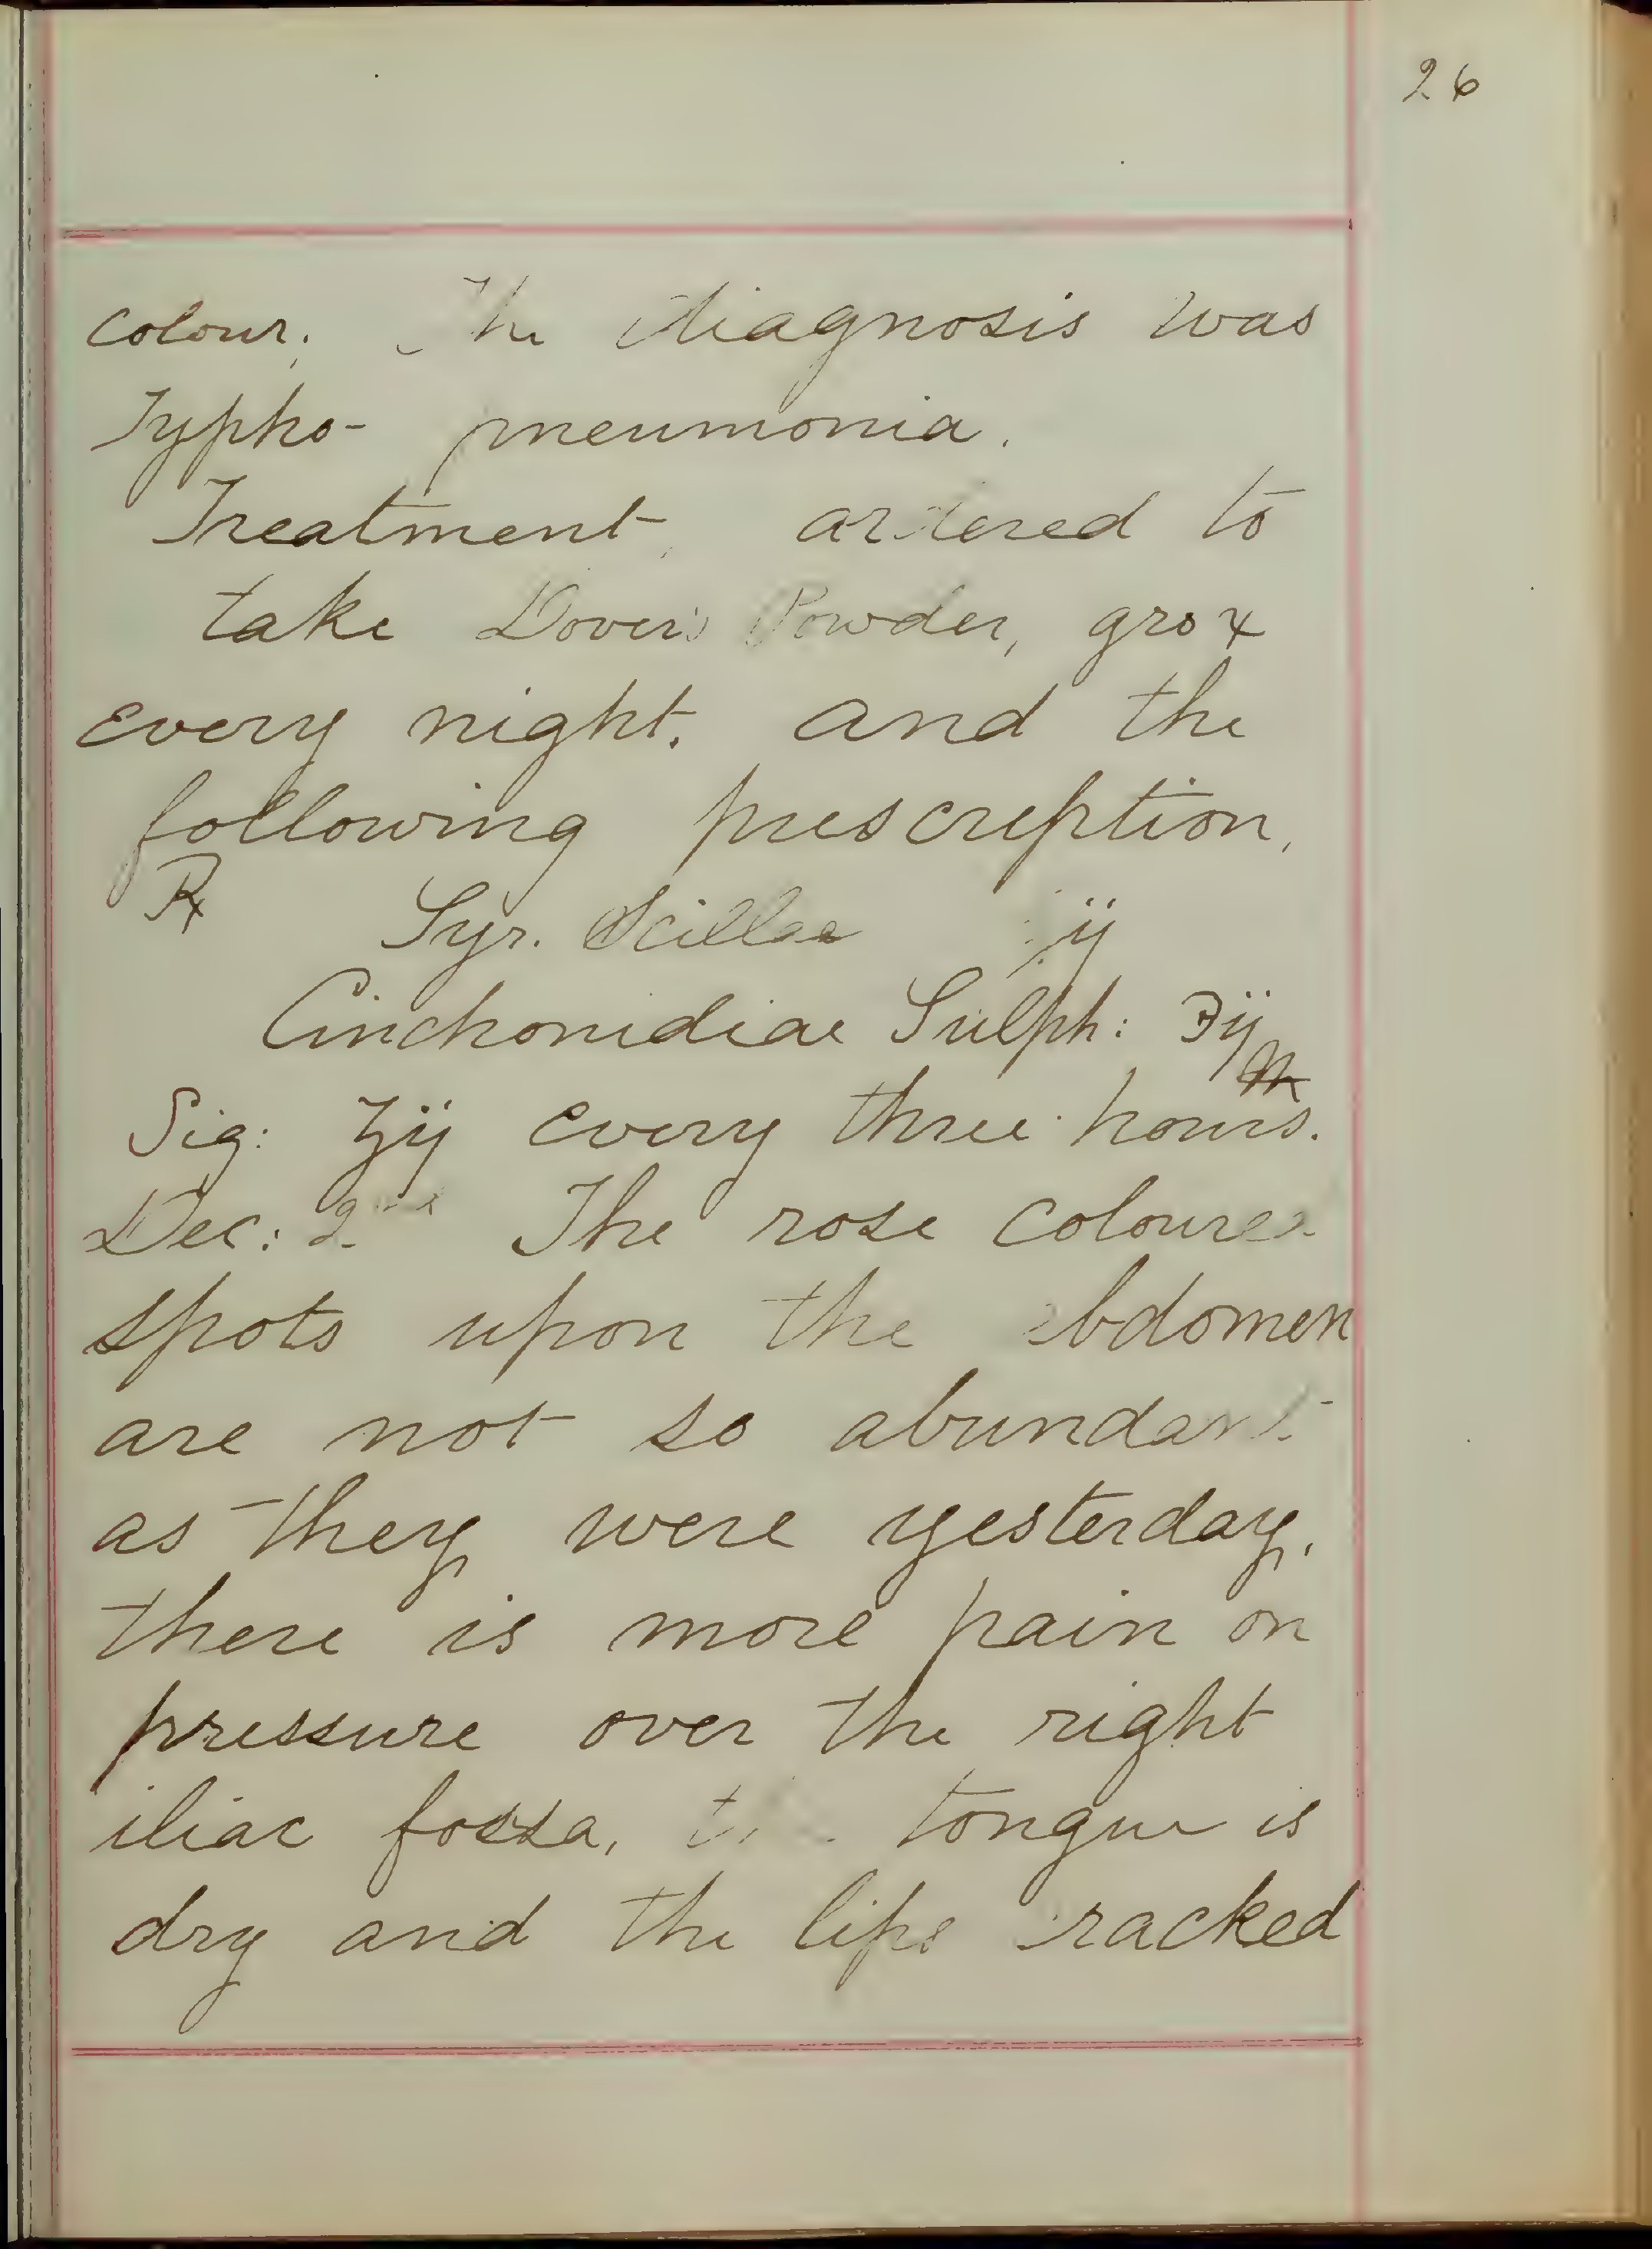 26
colour. The diagnosis was
Typho- pneumonia.
Treatment, ordered to
take Dover's Powder, grs x
every night. and the
following prescription,
℞ Syr. Scillae ij
Cinchonidiae Sulph: ℈ij
M
Sig: ʒij every three hours.
Dec: 2nd The rose coloured
spots upon the abdomen
are not so abundant
as they were yesterday,
there is more pain on
pressure over the right
iliac fossa, the tongue is
dry and the lips cracked